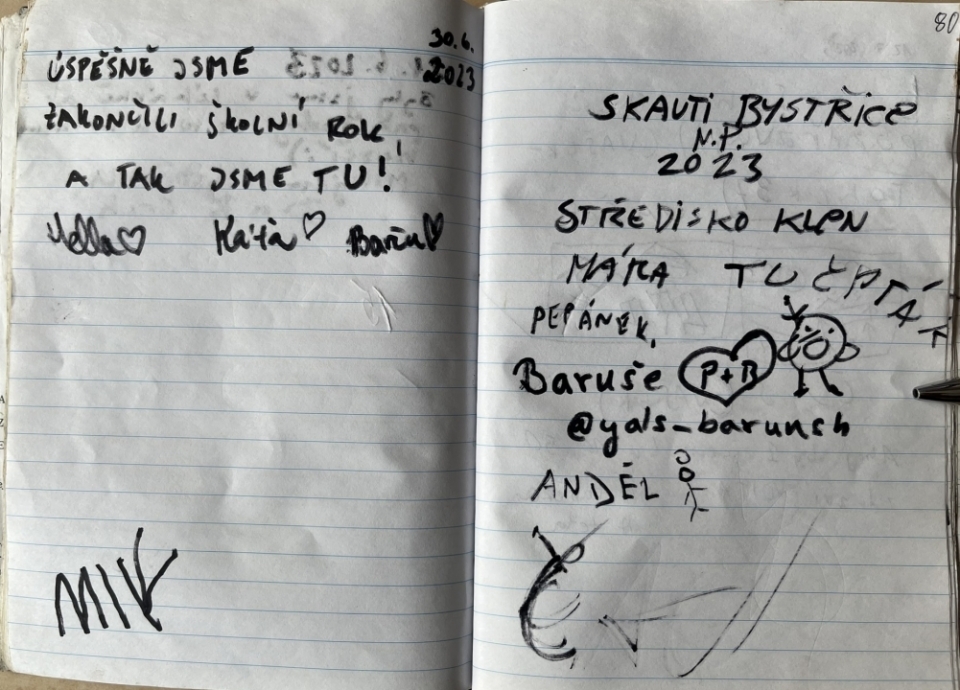 30.6.
2023
ÚSPĚŠNĚ JSME
ZAKONČILI ŠKOLNÍ ROK,
A TAK JSME TU!
Kája Barča
MIK
80
SKAUTI BYSTŘICE
N.P.
2023
STŘEDISKO KLEN
MÁRA TUČŇÁK
PEPÁNEK,
Baruše P+B
@yals_barunsh
ANDĚL